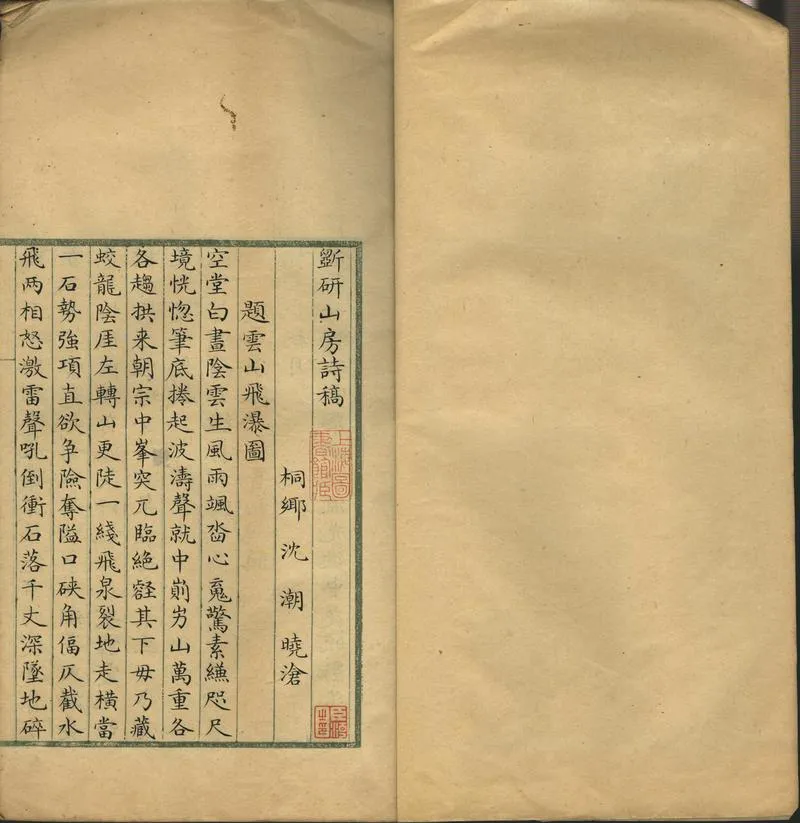 斵研山房詩稿
桐鄉沈潮曉滄
題雲山飛瀑圖
空堂白晝陰雲生風雨颯沓心䰟驚素縑咫尺
境恍惚筆底捲起波濤聲就中崱屴山萬重各
各趨拱来朝宗中峯突兀臨絕壑其下毋乃藏
蛟龍陰厓左轉山更陡一綫飛泉裂地走橫當
一石勢強項直欲争險奪隘口硤角偪仄截水
飛两相怒激雷聲吼倒衝石落千丈深墜地碎
上海圖書館藏